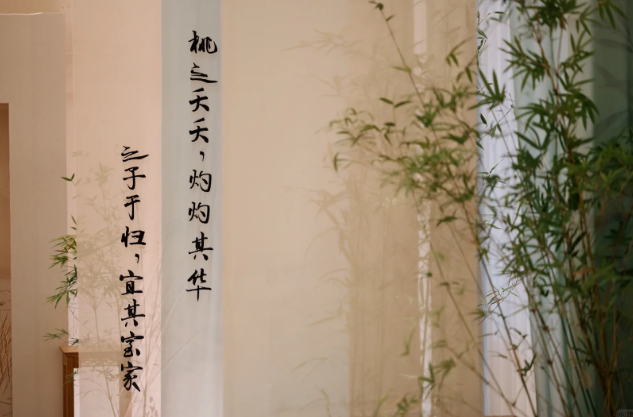 桃之夭夭，灼灼其华
之子于归，宜其室家